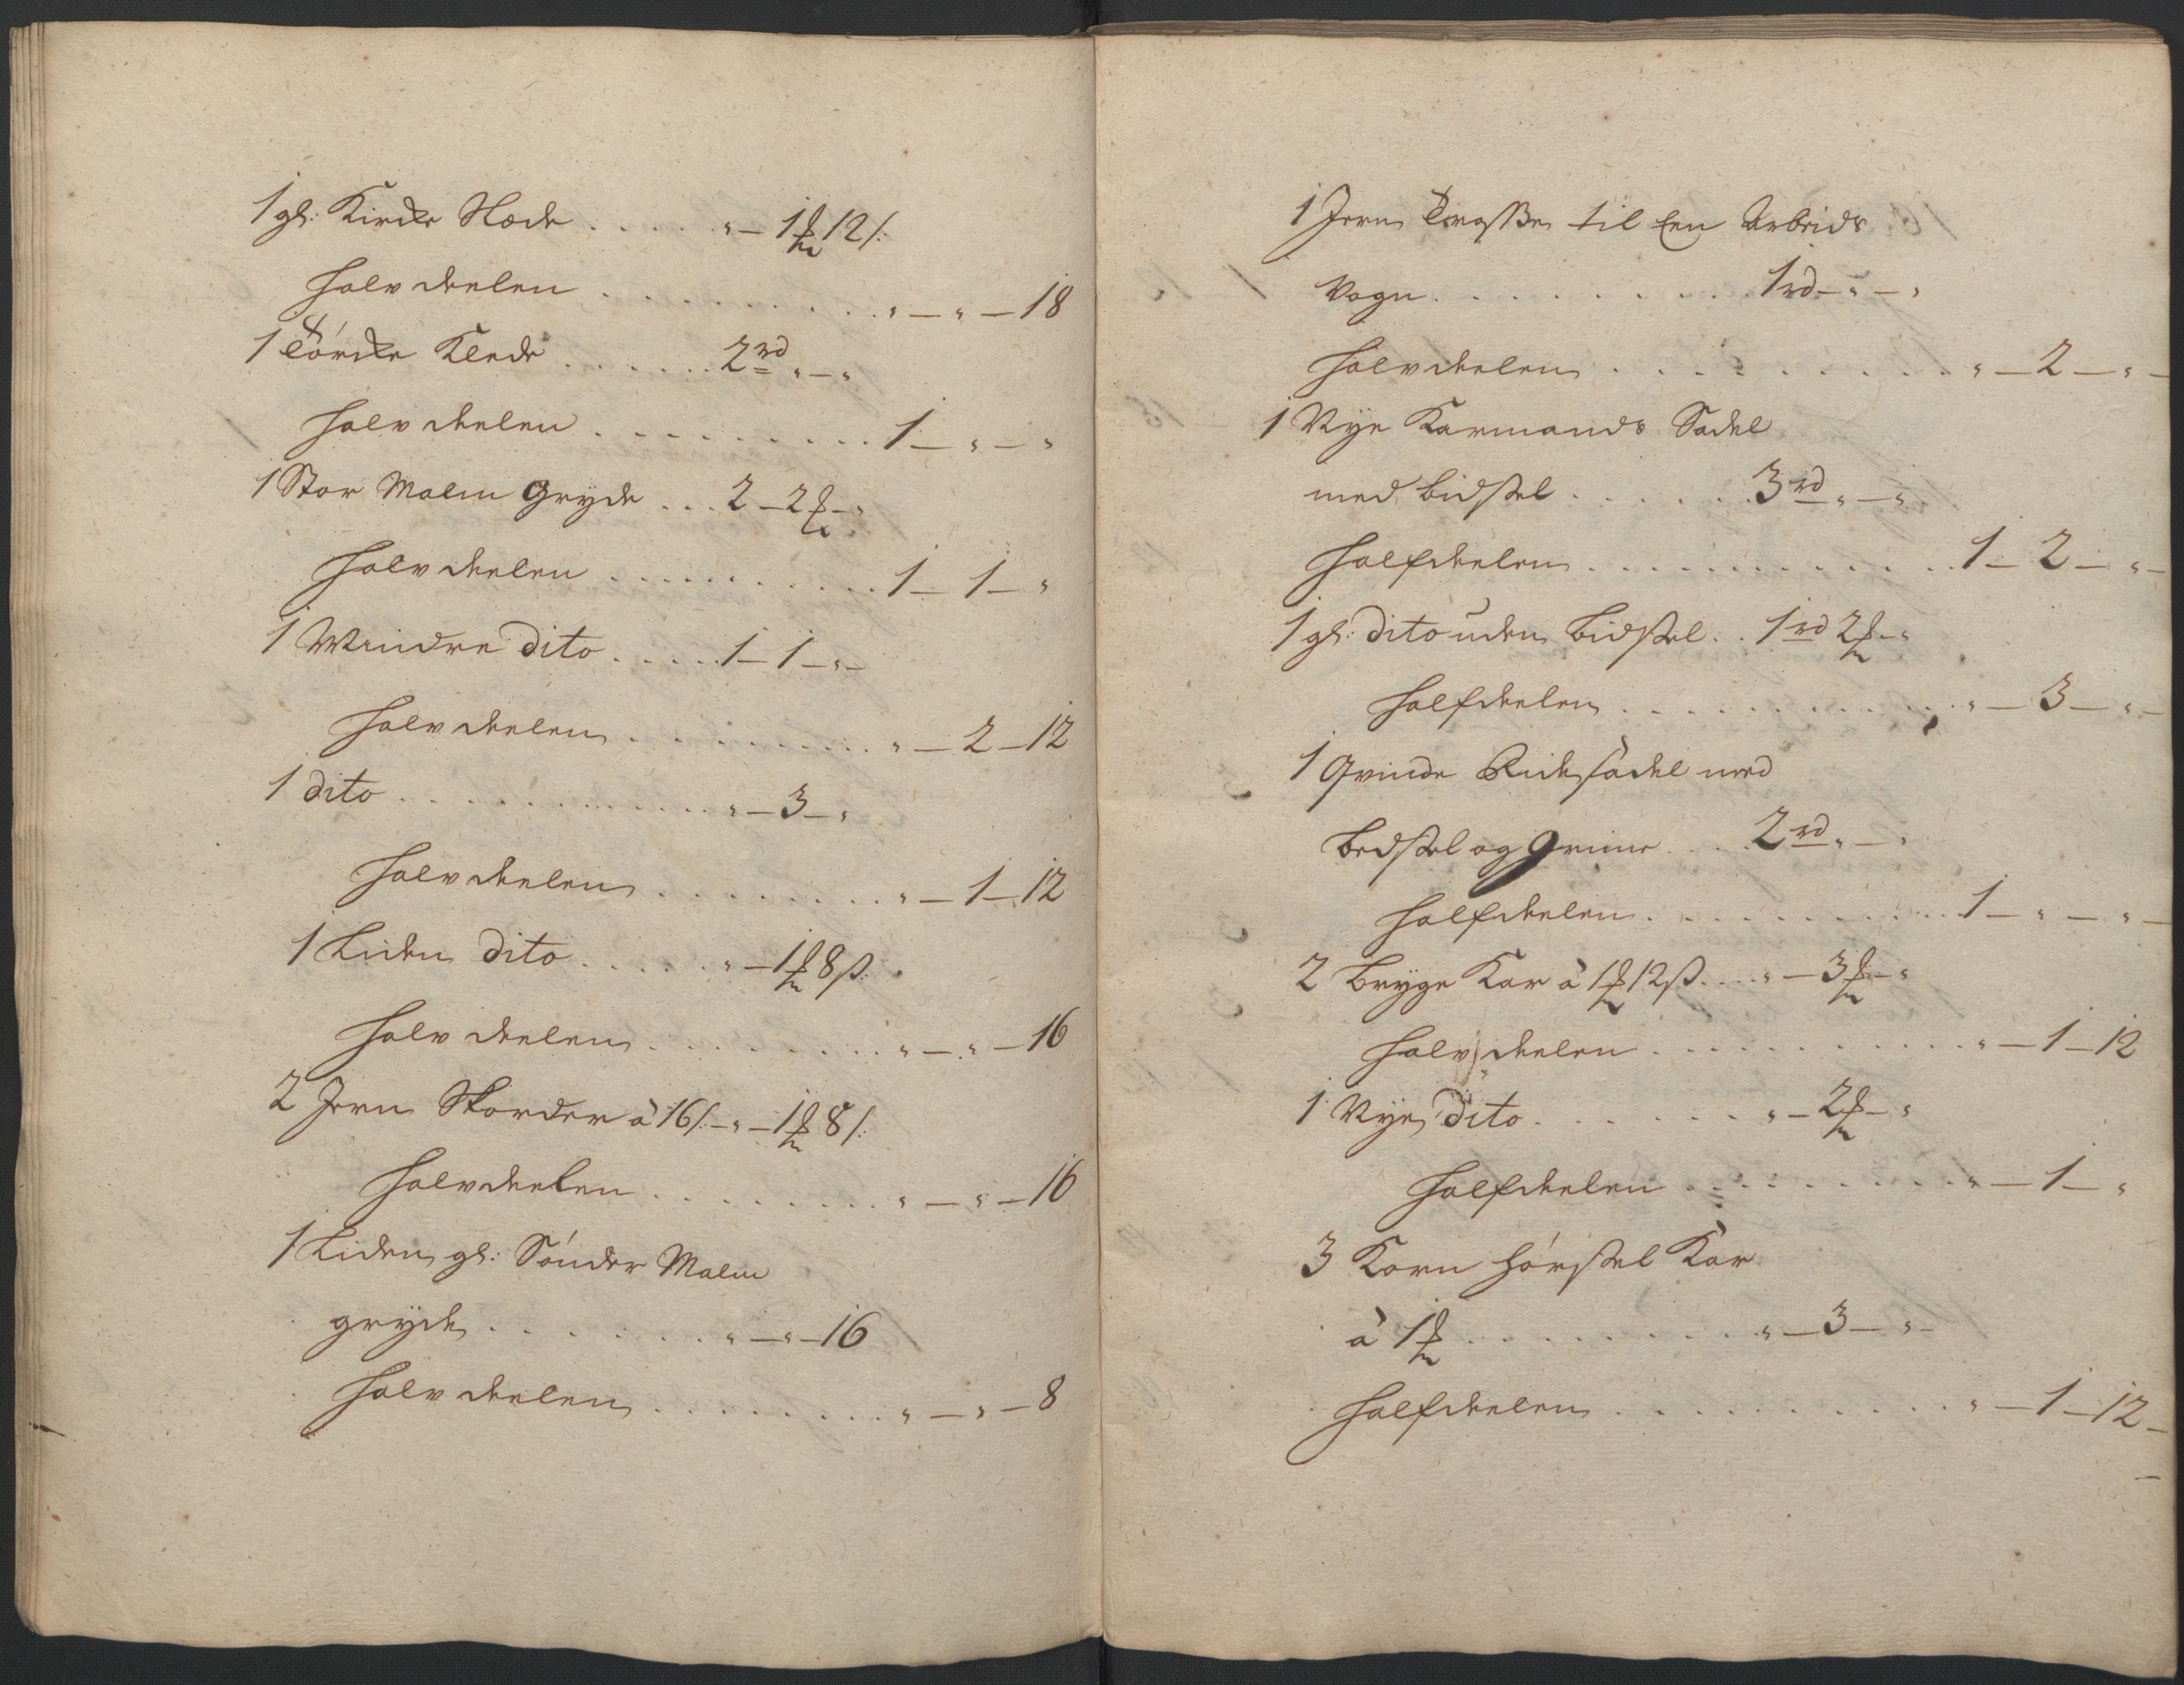 1 gl: Kircke Slæde . . . . . " — 1 ℳ 12 ß:
Halvdeelen . . . . . . . . . . " — " — 18
1 Törcke Klæde . . . . . . 2 rd " — "
Halvdeelen . . . . . . . . . 1 — " — "
1 Stor Malm Gryde . . . 2 — 2 ℳ — "
Halvdeelen . . . . . . . . . 1 — 1 — "
1 Mindre dito . . . . 1 — 1 — " —
Halvdeelen . . . . . . . . . " — 2 — 12
1 dito . . . . . . . . . . . " — 3 — "
Halvdeelen . . . . . . . . " — 1 — 12
1 Liden dito . . . . . " — 1 ℳ 8 ß:
Halvdeelen . . . . . . . . " — " — 16
2 Jern à 16 ß: — " — 1 ℳ 8 ß:
Halvdeelen . . . . . . . . " — " — 16
1 Liden gl: Sönder Malm
gryde . . . . . . . " — " — 16
Halvdeelen . . . . . . . . " — " — 8
1 Jern til Een Arbeids
Vogn . . . . . . . . . 1 rd — " — "
Halvdeelen . . . . . . . . . . " — 2 — " —
1 Nye Karmands Sadel
med bidssel . . . . . . 3 rd " — "
Halfdeelen . . . . . . . . . . . 1 — 2 — " —
1 gl: dito uden bidssel . . 1 rd 2 ℳ — "
Halfdeelen . . . . . . . . . . . " — 3 — " —
1 Qvinde Ride sadel med
bedssel og Grime . . . 2 rd " — "
Halfdeelen . . . . . . . . . . 1 — " — " —
2 Bryge Kar à 1 ℳ 12 ß . . . " — 3 ℳ — "
Halvdeelen . . . . . . . . . . " — 1 — 12
1 Nye dito . . . . . . . " — 2 ℳ — "
Halfdeelen . . . . . . . . . " — 1 — "
3 Korn Kar
à 1 ℳ . . . . . . . . . " — 3 — " —
Halfdeelen . . . . . . . . . . " — 1 — 12 —